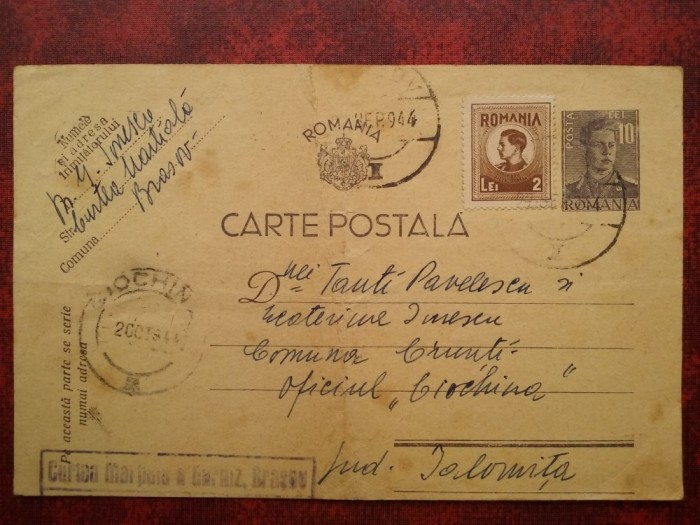 Numele
și adresa
trimițătorului
Curtea Marțială
Str.
Brasov
Comuna
ROMANIA
SEP.944
ROMANIA
LEI 2
POSTA
LEI
10
ROMANIA
CARTE POSTALĂ
CIOCHIN
2 OCT 944
Pe această parte se scrie
numai adresa
Dnei Tanti Pavelescu si
Ecaterine Inescu
Comuna Crunti-
Oficiul „Ciochina"
Jud. Ialomița
Curtea Marțială a Garniz. Brașov